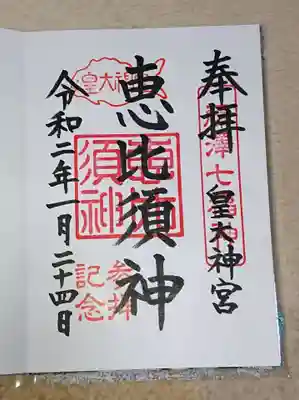 奉拝
皇大神宮
恵比須神
令和二年一月二十四日
皇大神
恵比
須神
参拝
記念